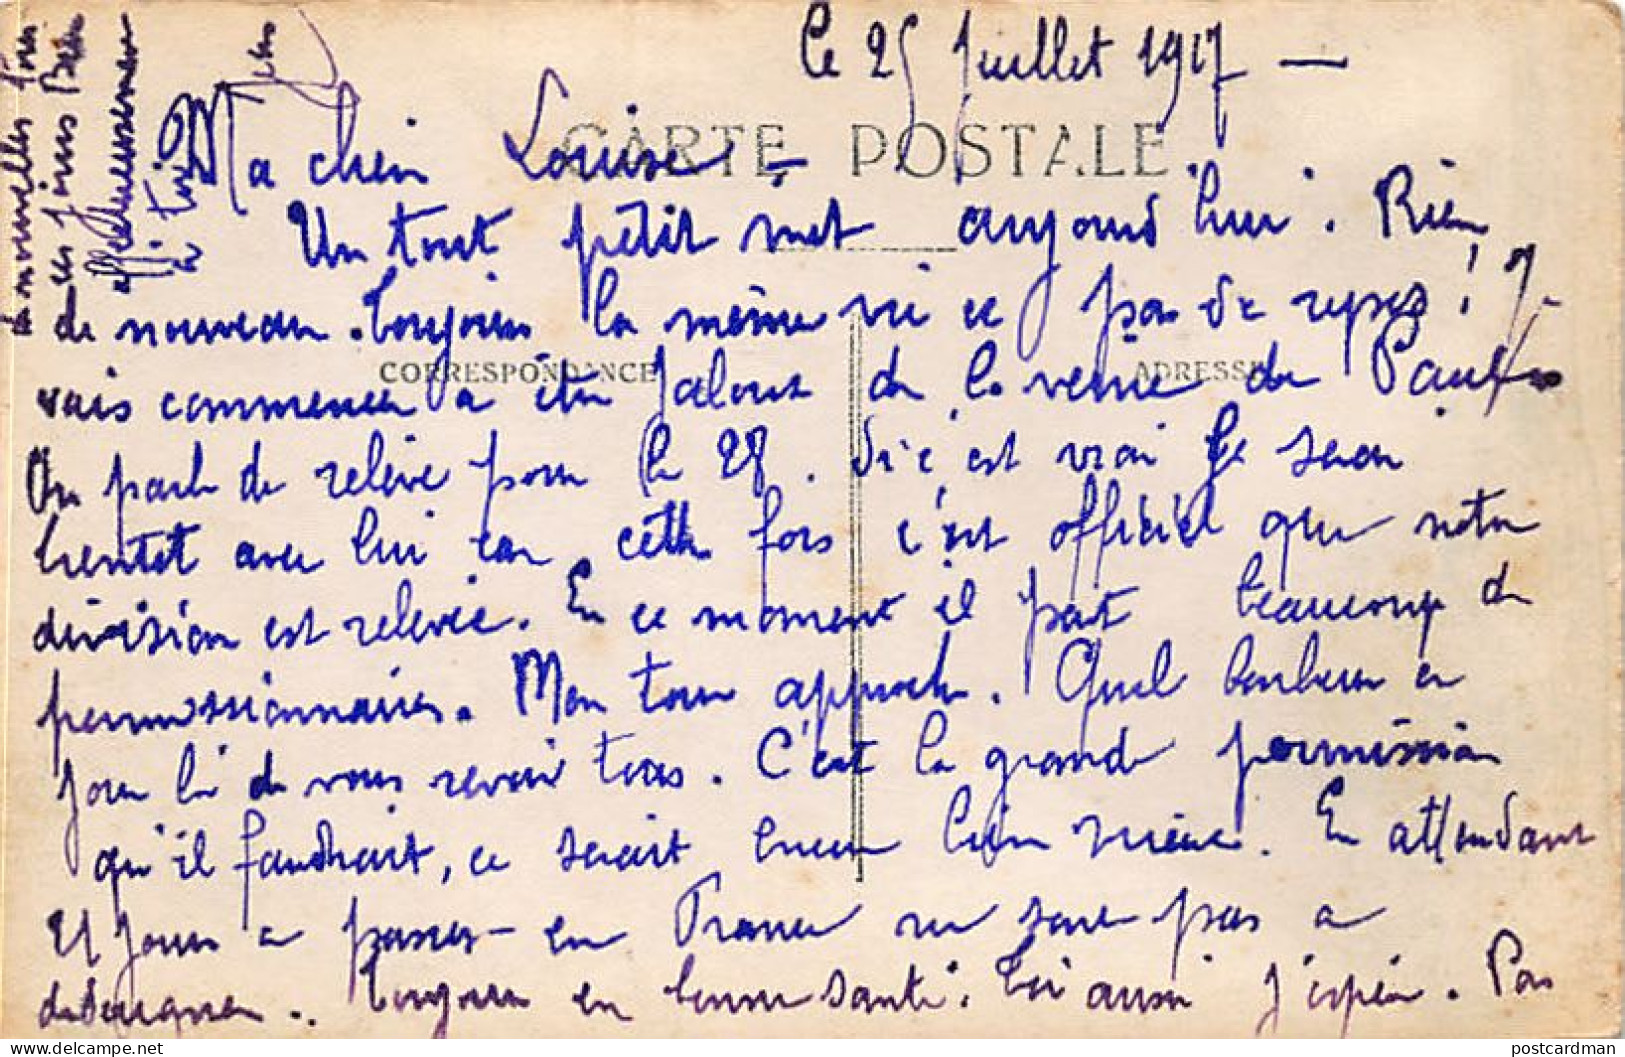 Le 25 Juillet 1917 —
CARTE POSTALE
Ma chère Louise –
Un tout petit mot aujourd'hui. Rien
de nouveau. Toujours la même vie pas de repos ! J
CORRESPONDANCE
ADRESSE
vais commencer à être jaloux de la veine de Paul
On parle de relève pour le 28. Si c'est vrai je serai
bientôt avec lui car cette fois c'est officiel que notre
division est relevée. En ce moment il part beaucoup de
permissionnaires. Mon tour approche. Quel bonheur ce
jour là de vous revoir tous. C'est la grande permission
qu'il faudrait, ce serait encore bien mieux. En attendant
21 jours à passer en France ne sont pas à
dédaigner.. Toujours en bonne santé. Toi aussi j'espère. Pas
de nouvelles
ces jours
affectueusement
à toi
postcardman